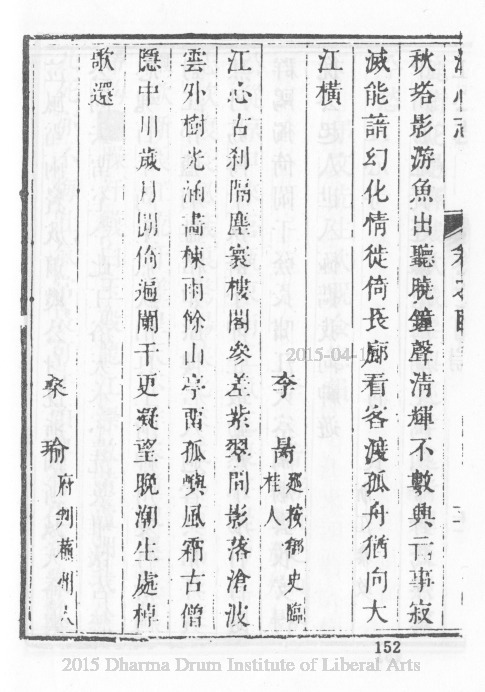 江心志
秋塔影游魚出聽曉鐘聲清輝不數興亡事寂
滅能諳幻化情徙倚長廊看客渡孤舟猶向大
江橫
李 巡按御史臨桂人
江心古刹隔塵寰樓閣參差紫翠間影落滄波
雲外樹光涵畵棟雨餘山亭留孤嶼風霜古僧
隱中川歲月閒倚遍闌干更凝望晚潮生處棹
歌還
瑜 府判蘄州人
2015-04-1
152
2015 Dharma Drum Institute of Liberal Arts